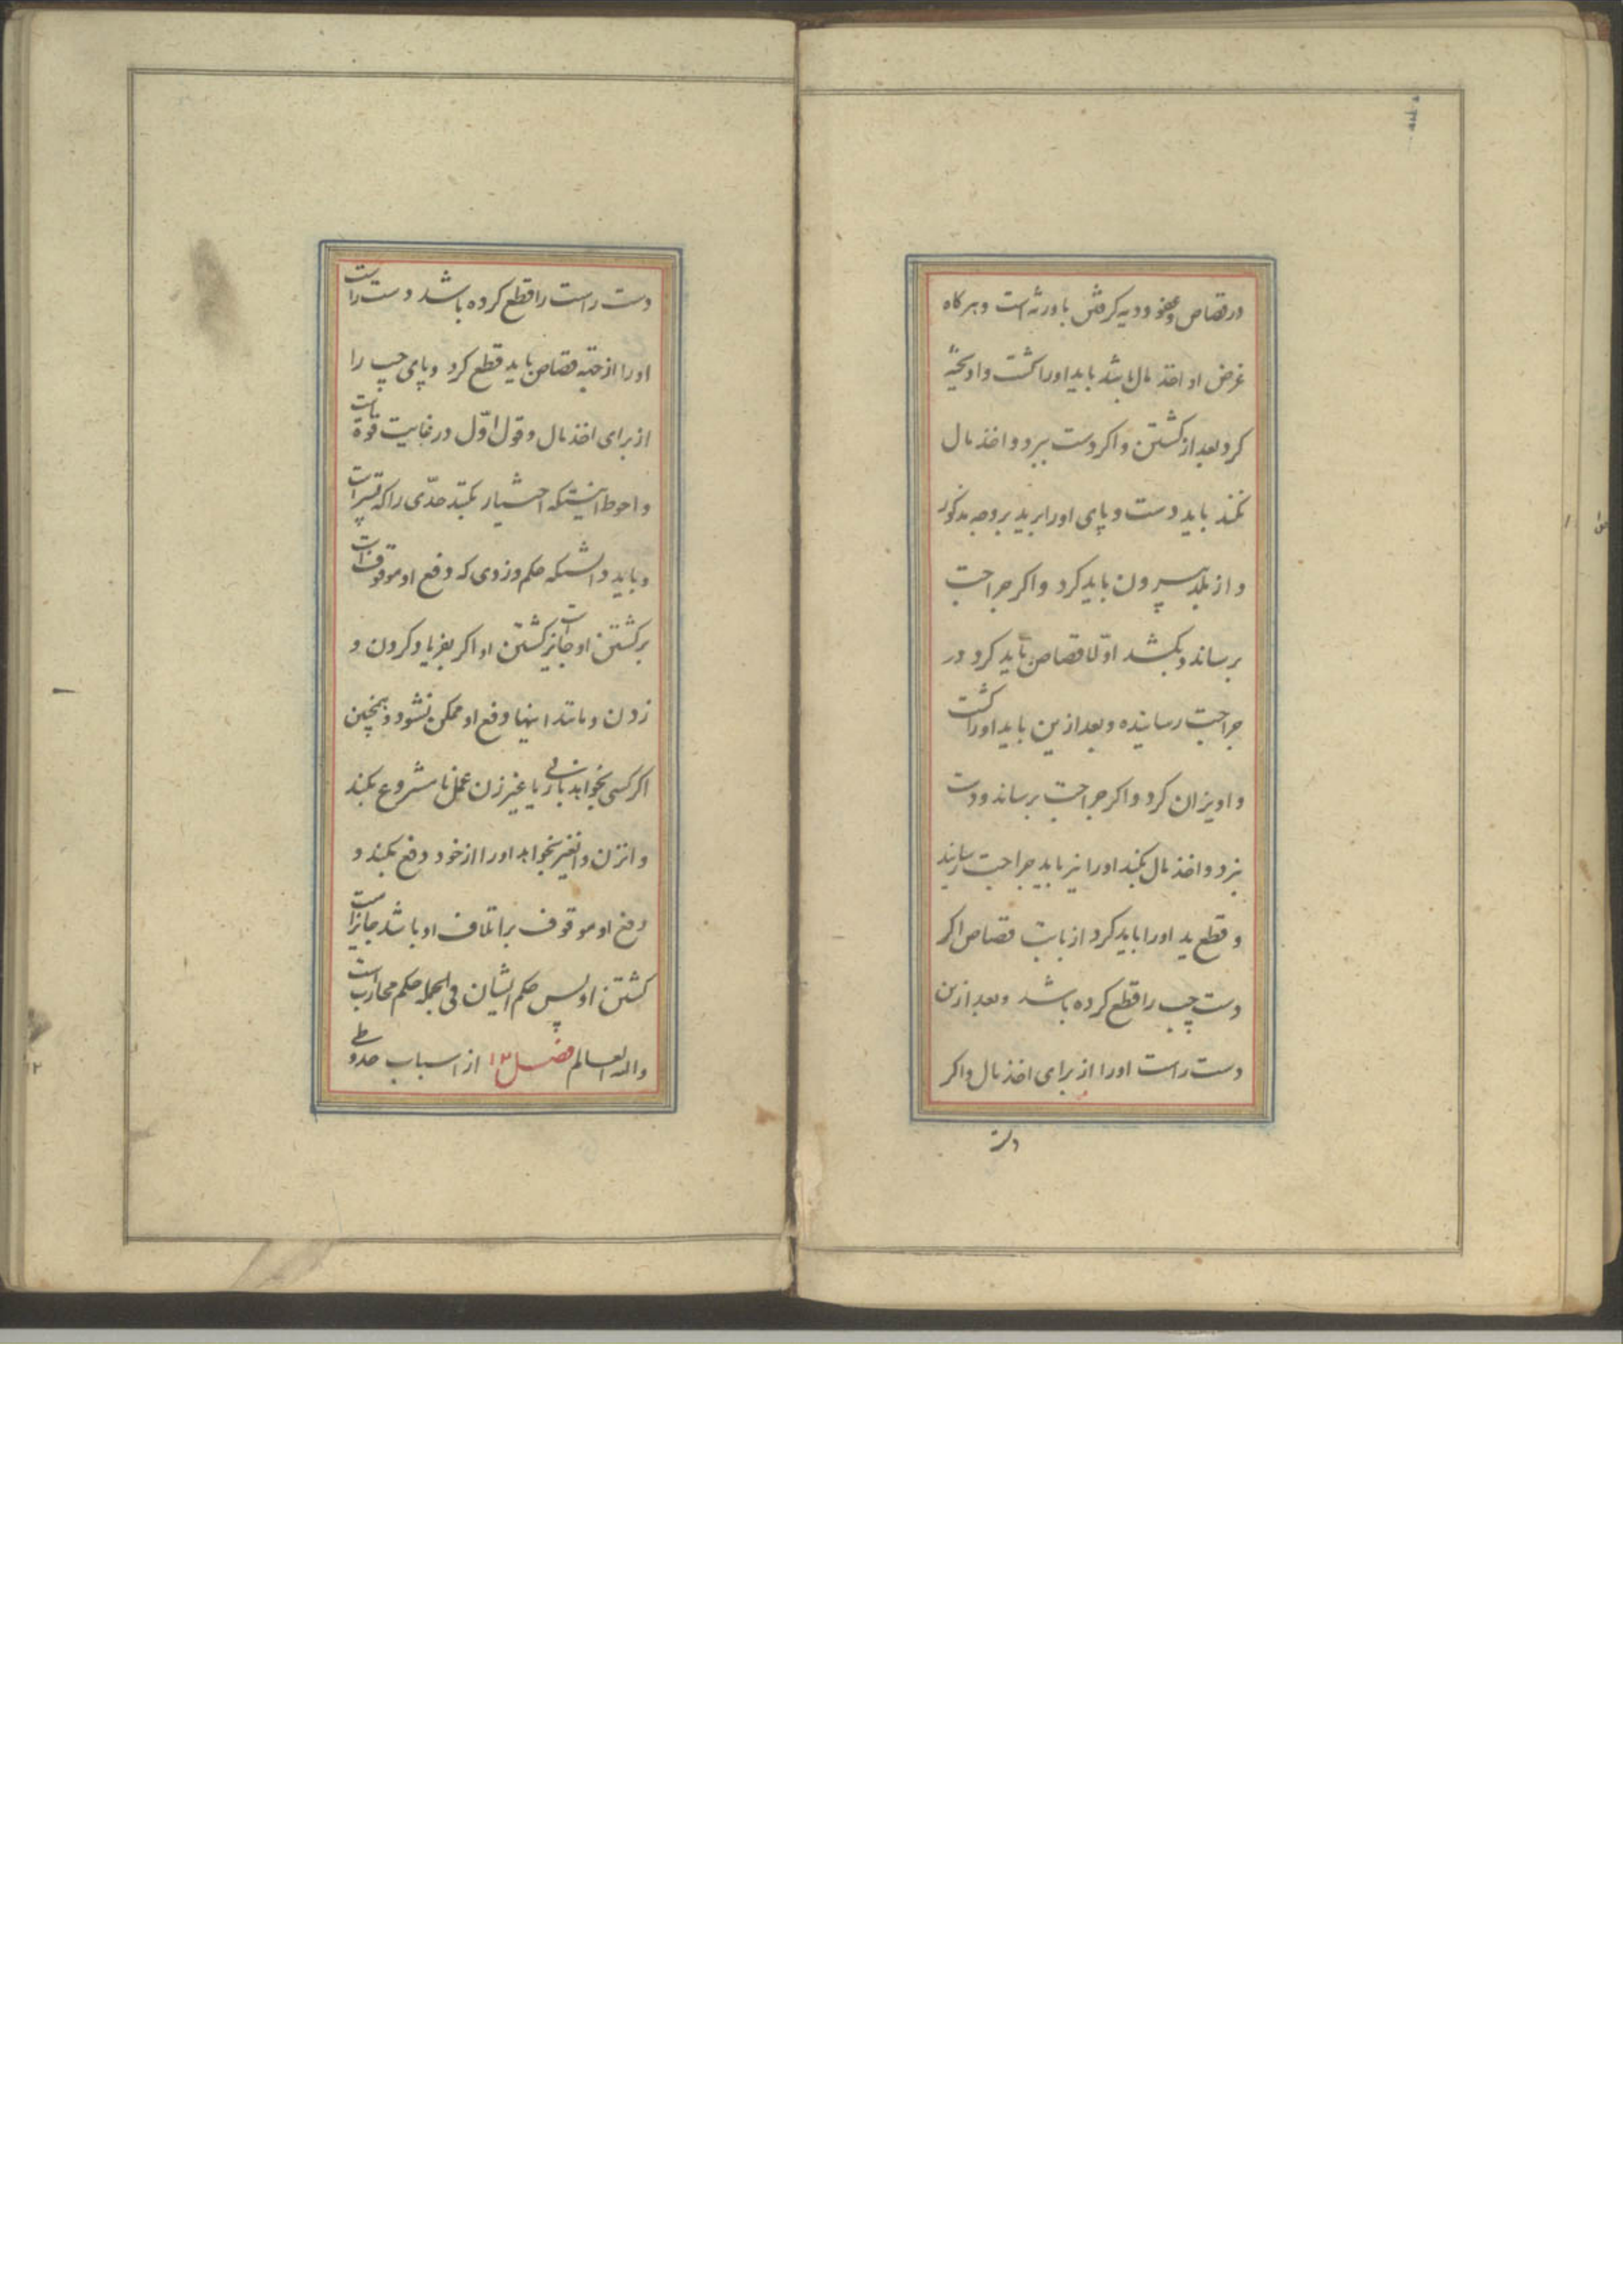 در قصاص و عفو و دیه گرفتن با ورثه است و هرگاه
غرض او اخذ مال باشد باید اورا کشت و اویخته
کرد بعد از کشتن و اکر دست ببرد و اخذ مال
نکند باید دست و پای اورا برید بر وجه مذکور
و از بلد بیرون باید کرد و اکر جراحت
برساند و بکشد اوّلا قصاص باید کرد در
جراحت رسانیده و بعد ازین باید اورا کشت
و اویزان کرد و اکر جراحت برساند و دست
ببرد و اخذ مال بکند اورا نیز باید جراحت رسانید
و قطع ید اورا باید کرد از بابت قصاص اکر
دست چپ را قطع کرده باشد و بعد ازین
دست راست اورا از برای اخذ مال و اکر
دست
دست راست را قطع کرده باشد دست راست
اورا از جهته قصاص باید قطع کرد و پای چپ را
از برای اخذ مال و قول اوّل در غایت قوة است
و احوط اینستکه اختیار بکند حدّی را که
و باید دانستکه حکم دزدی که دفع او موقوف است
بر کشتن او جایز است کشتن او اکر بفریاد کردن و
زدن و مانند اینها دفع او ممکن نشود و همچنین
اکر کسی بخواهد با زنی یا غیر زن عمل نامشروع بکند
و انزن و انغیر بخواهد اورا از خود دفع بکند و
دفع او موقوف بر اتلاف او باشد جایز است
کشتن او پس حکم ایشان فی الجمله حکم محارب است
والله العالم فصل ۱۳ از اسباب حد وطی